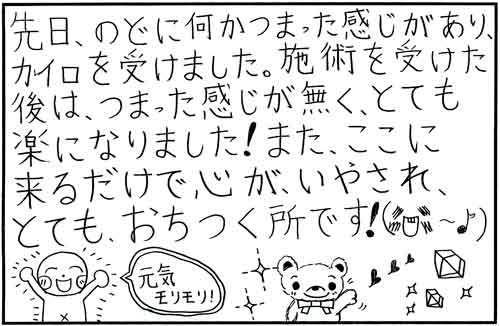 先日、のどに何かつまった感じがあり、
カイロを受けました。施術を受けた
後は、つまった感じが無く、とても
楽になりました!また、ここに
来るだけで、心が、いやされ、
とても、おちつく所です!(〜♪)
元気
モリモリ!